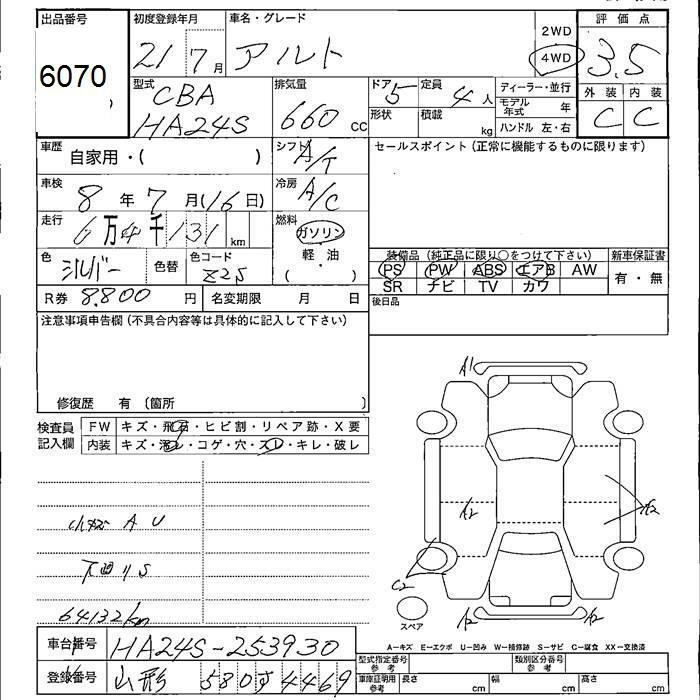 出品番号 初度登録年月 車名・グレード 評価点
6070 21 7月 アルト 2WD 4WD 3.5
型式 排気量 ドア 定員 ディーラー・並行 外装 内装
CBA 660 cc 5 4人 モデル年式 年 C C
HA24S 形状 積載 kg ハンドル 左・右
車歴 シフト セールスポイント(正常に機能するものに限ります)
自家用・( ) A/T
車検 8年 7月(16日) 冷房 A/C
走行 6万4千131 km 燃料 ガソリン
色 シルバー 色替 色コード Z2S 軽・油
( )
装備品(純正品に限り○をつけて下さい) 新車保証書
PS PW ABS エアB AW 有・無
SR ナビ TV カワ
R券 8,800円 名変期限 月 日 後日品
注意事項申告欄(不具合内容等は具体的に記入して下さい)
修復歴 有 (箇所 )
検査員記入欄 FW キズ・飛石・ヒビ割・リペア跡・X要
内装 キズ・汚レ・コゲ・穴・スレ・キレ・破レ
A1
A2 A2
小キズ A U
下回りS
C2
64132km
A2 A2
スペア
A−キズ E−エクボ U−凹み W−補修跡 S−サビ C−腐食 XX−交換済
車台番号 HA24S-253930
型式指定番号 参考 類別区分番号 参考
登録番号 山形 580す4469
車庫証明用 参考 長さ cm 幅 cm 高さ cm